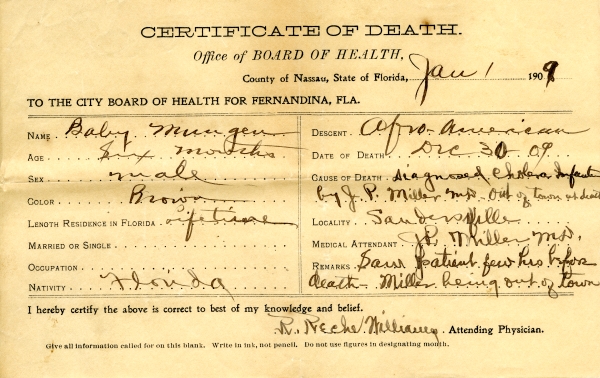 CERTIFICATE OF DEATH.
Office of BOARD OF HEALTH,
County of Nassau, State of Florida, Jan 1 1909
TO THE CITY BOARD OF HEALTH FOR FERNANDINA, FLA.
NAME Baby Mungen
AGE Six months
SEX male
COLOR Brown
LENGTH RESIDENCE IN FLORIDA lifetime
MARRIED OR SINGLE
OCCUPATION
NATIVITY Florida
DESCENT Afro-American
DATE OF DEATH Dec 30 09
CAUSE OF DEATH diagnosed Cholera Infant
by J. P. Miller MD. Out of town at death
LOCALITY Sandersville
MEDICAL ATTENDANT Miller MD.
REMARKS Saw patient few hrs before
death - Miller being out of town
I hereby certify the above is correct to best of my knowledge and belief.
Williams, Attending Physician.
Give all information called for on this blank. Write in ink, not pencil. Do not use figures in designating month.